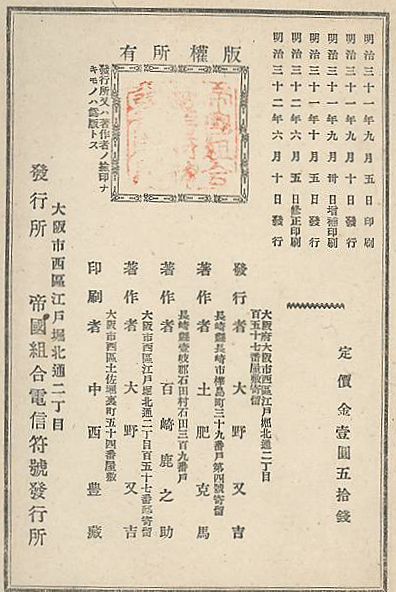 明治三十一年九月五日印刷
明治三十一年九月十日發行
明治三十一年九月卅日增補印刷
明治三十一年十月五日發行
明治三十二年六月五日修正印刷
明治三十二年六月十日發行
定價金壹圓五拾錢
版權所有
發行所又ハ著作者ノ
キモノハ僞版トス
大阪府大阪市西區江戸堀北通二丁目
百五十七番屋敷寄留
發行者 大野又吉
長崎縣長崎市樺島町三十九番戸第四號寄留
著作者 土肥克馬
長崎縣壹岐郡石田村石田三百九番戸
著作者 百崎鹿之助
大阪市西區江戸堀北通二丁目百五十七番邸寄留
著作者 大野又吉
大阪市西區土佐堀裏町五十四番屋敷
印刷者 中西豊藏
大阪市西區江戸堀北通二丁目
發行所 帝國組合電信符號發行所